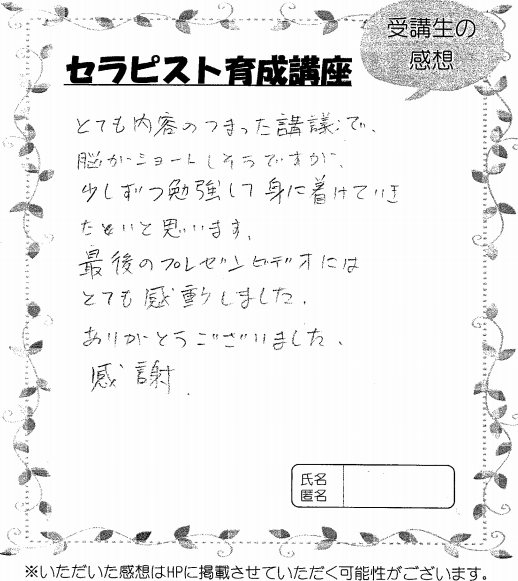 受講生の
感想
セラピスト育成講座
とても内容のつまった講議で、
脳がショートしそうですが、
少しずつ勉強して身に着けていき
たいと思います。
最後のプレゼンビデオには
とても感動しました。
ありがとうございました。
感謝.
氏名
匿名
※いただいた感想はHPに掲載させていただく可能性がございます。